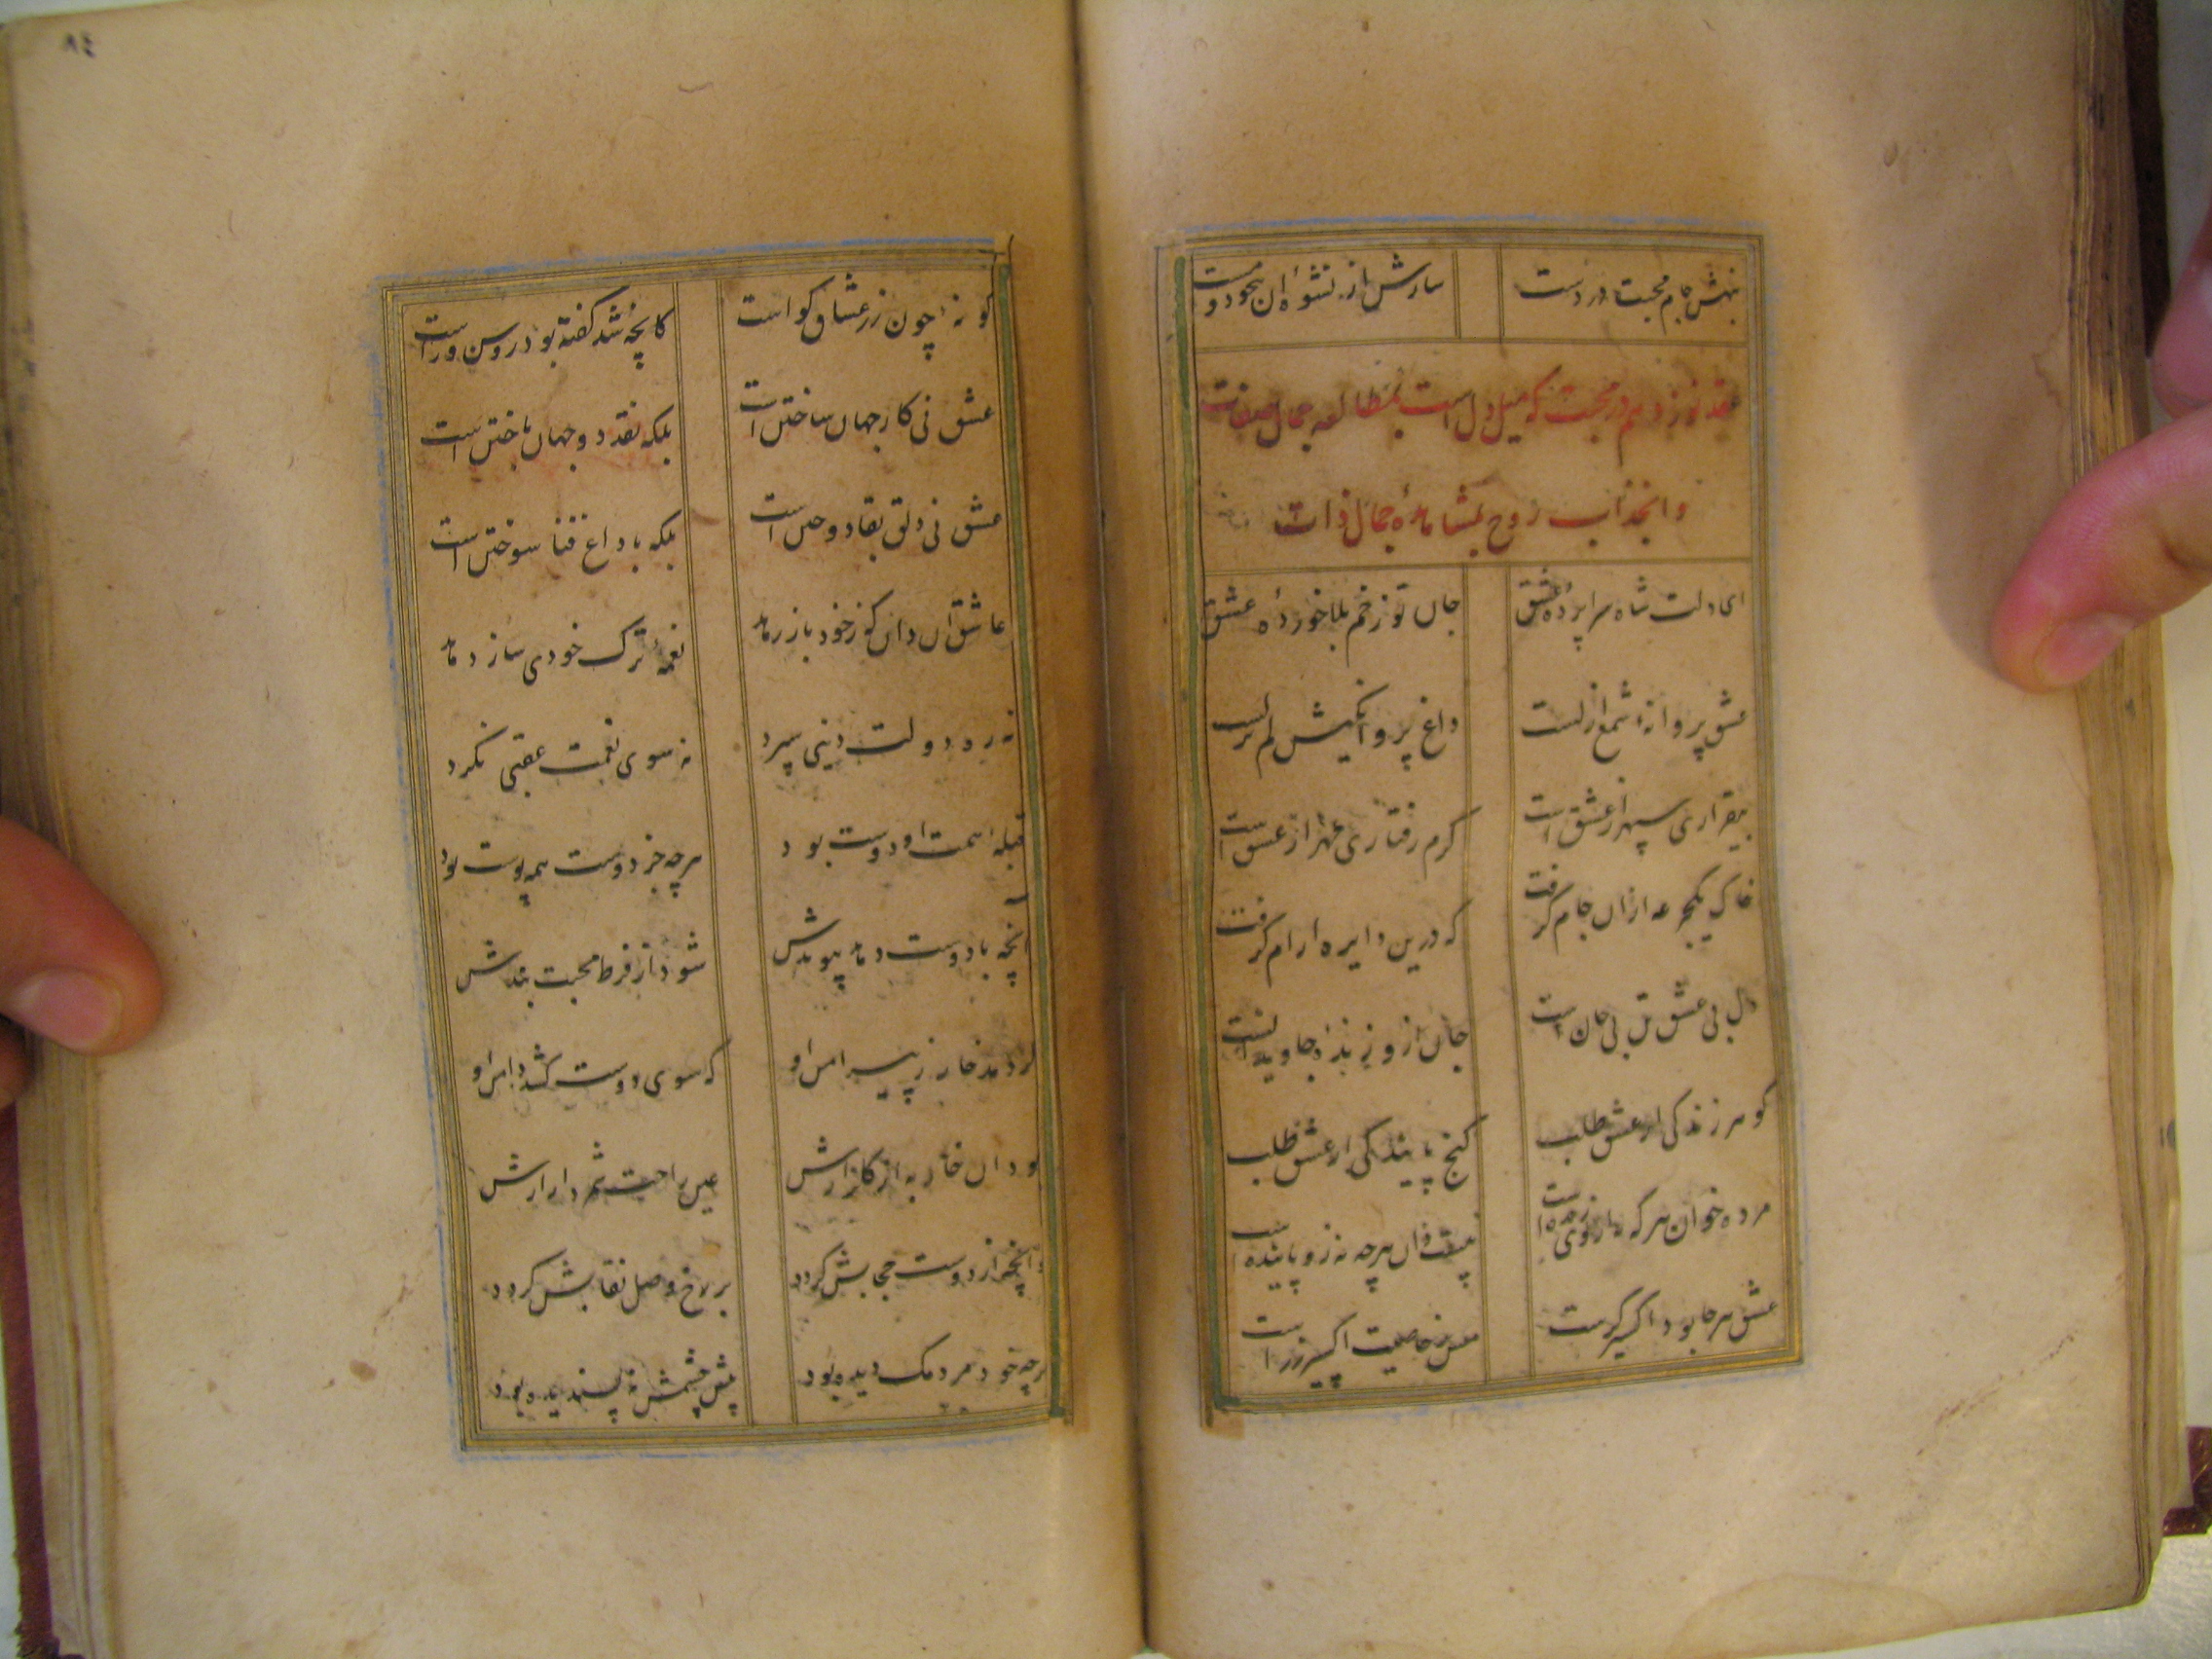 بنهش جام محبت در دست
سازش از نشوه آن بیخود و مست
عقد نوزدهم در محبت که میل دل است بمطالعه جمال صفات
وانجذاب روح بمشاهده جمال ذات
ای دلت شاه سراپرده عشق
جان تو زخم بلا خورده عشق
عشق پروانه شمع ازلست
داغ پروانگیش لم یزلست
بیقراری سپهر از عشق است
گرم رفتاری مهر از عشق است
خاک یکجرعه از آن جام گرفت
که درین دایره آرام گرفت
دل بی عشق تن بی جان است
جان ازو زنده جاویدانست
گوهر زندگی از عشق طلب
گنج پایندگی از عشق طلب
مرده خوان هر که نه از وی زنده است
نیست دان هر چه نه زو پاینده است
عشق هر جا بود اکسیر گرست
مس ز خاصیت اکسیر زر است
گونه چون زر عشاق گواست
کانچه شد گفته بود روشن و راست
عشق نی کار جهان ساختن است
بلکه نقد دو جهان باختن است
عشق نی دلق بقا دوختن است
بلکه با داغ فنا سوختن است
عاشق آن دان کو ز خود باز رهد
نغمه ترک خودی ساز دهد
نه ره دولت دینی سپرد
نه سوی نعمت عقبی نگرد
قبله همت او دوست بود
هرچه جز دوست همه پوست بود
آنچه با دوست دهد پیوندش
شود از فرط محبت بندش
گر دمد خار ز پیرامن او
که سوی دوست کشد دامن او
بود آن خار به از گلزارش
عین راحت شمرد آزارش
وانچه از دوست حجابش گردد
بر رخ وصل نقابش گردد
هرچه خود مردمک دیده بود
پیش چشمش نه پسندیده بود
٨٤